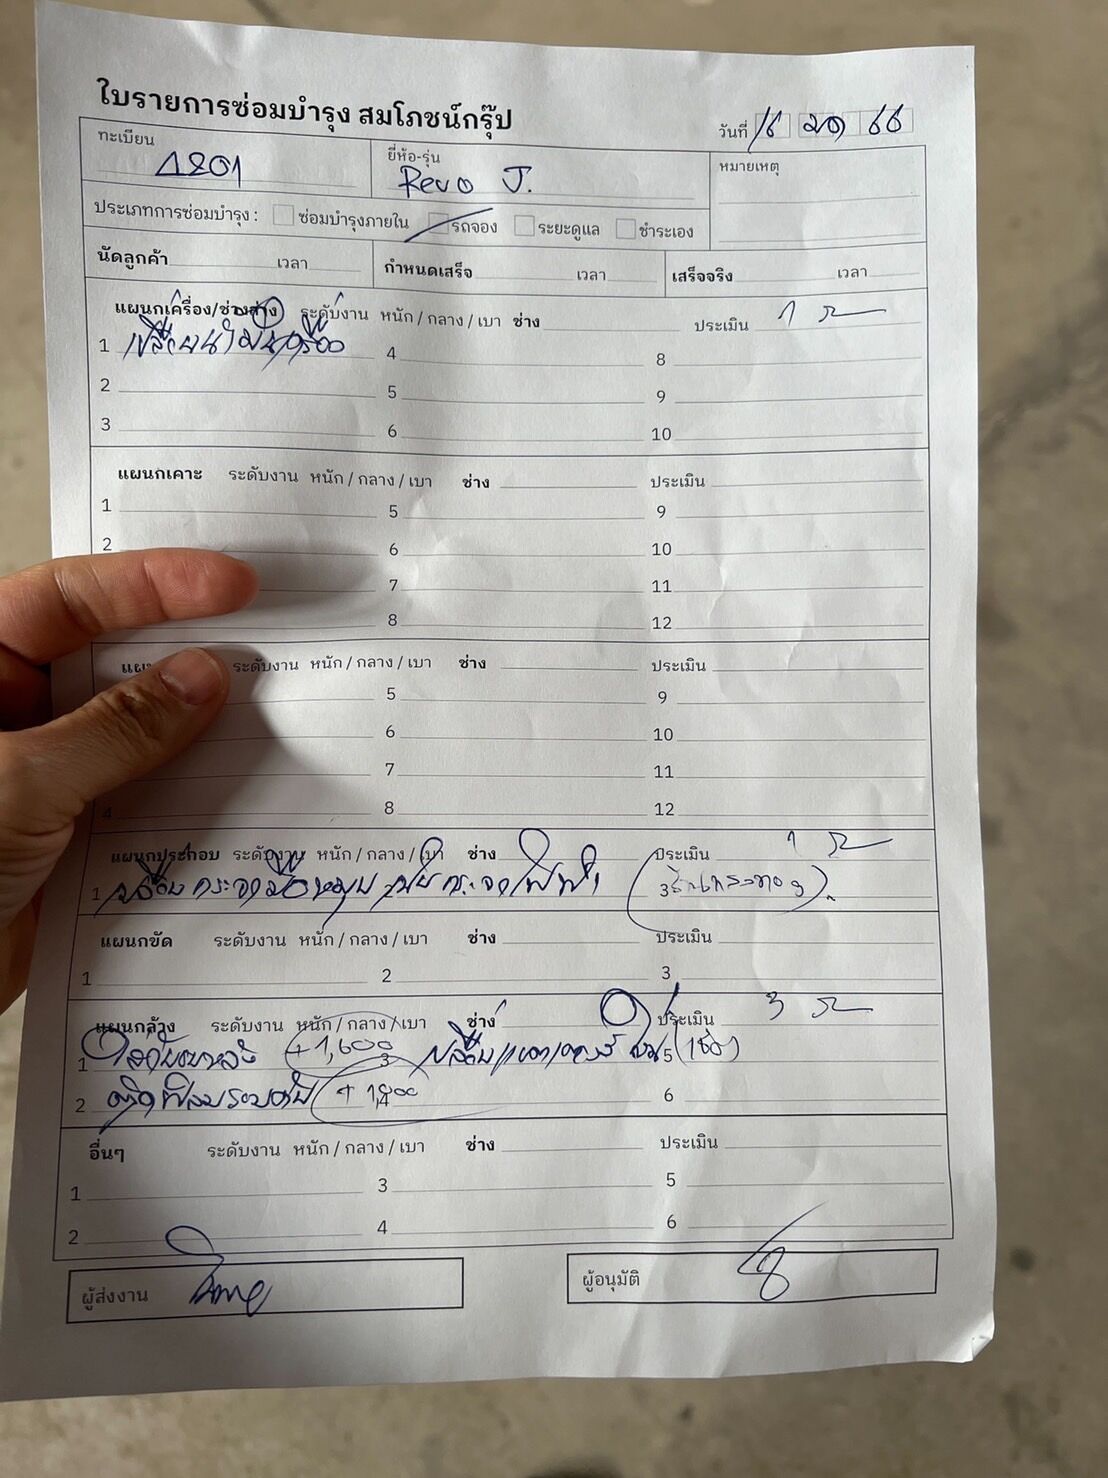 ใบรายการซ่อมบำรุง สมโภชน์กรุ๊ป
วันที่ 16 66
ทะเบียน ยี่ห้อ-รุ่น หมายเหตุ
Revo J.
ประเภทการซ่อมบำรุง : ซ่อมบำรุงภายใน รถจอง ระยะดูแล ชำระเอง
นัดลูกค้า เวลา กำหนดเสร็จ เวลา เสร็จจริง เวลา
แผนกเครื่อง/ช่างล่าง ระดับงาน หนัก / กลาง / เบา ช่าง ประเมิน 1
1 เปลี่ยนน้ำมันเครื่อง 4 8
2 5 9
3 6 10
แผนกเคาะ ระดับงาน หนัก / กลาง / เบา ช่าง ประเมิน
1 5 9
2 6 10
7 11
8 12
แผน ระดับงาน หนัก / กลาง / เบา ช่าง ประเมิน
5 9
6 10
7 11
4 8 12
แผนกประกอบ ระดับงาน หนัก / กลาง / เบา ช่าง ประเมิน 1
1 กระจกมือหมุน กระจกไฟฟ้า 3
แผนกขัด ระดับงาน หนัก / กลาง / เบา ช่าง ประเมิน
1 2 3
แผนกล้าง ระดับงาน หนัก / กลาง / เบา ช่าง ประเมิน 3
1 +1,600 3 เปลี่ยน 5
2 ติดฟิล์มรอบคัน 4 6
อื่นๆ ระดับงาน หนัก / กลาง / เบา ช่าง ประเมิน
1 3 5
2 4 6
ผู้ส่งงาน ผู้อนุมัติ